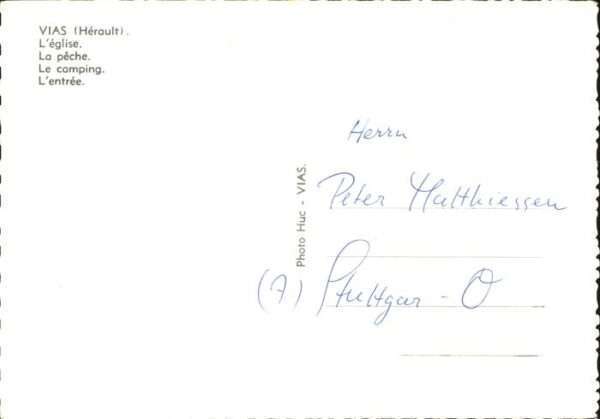 VIAS (Hérault).
L'église.
La pêche.
Le camping.
L'entrée.
Photo Huc - VIAS.
Herrn
Peter Matthiessen
(7) Stuttgar - O